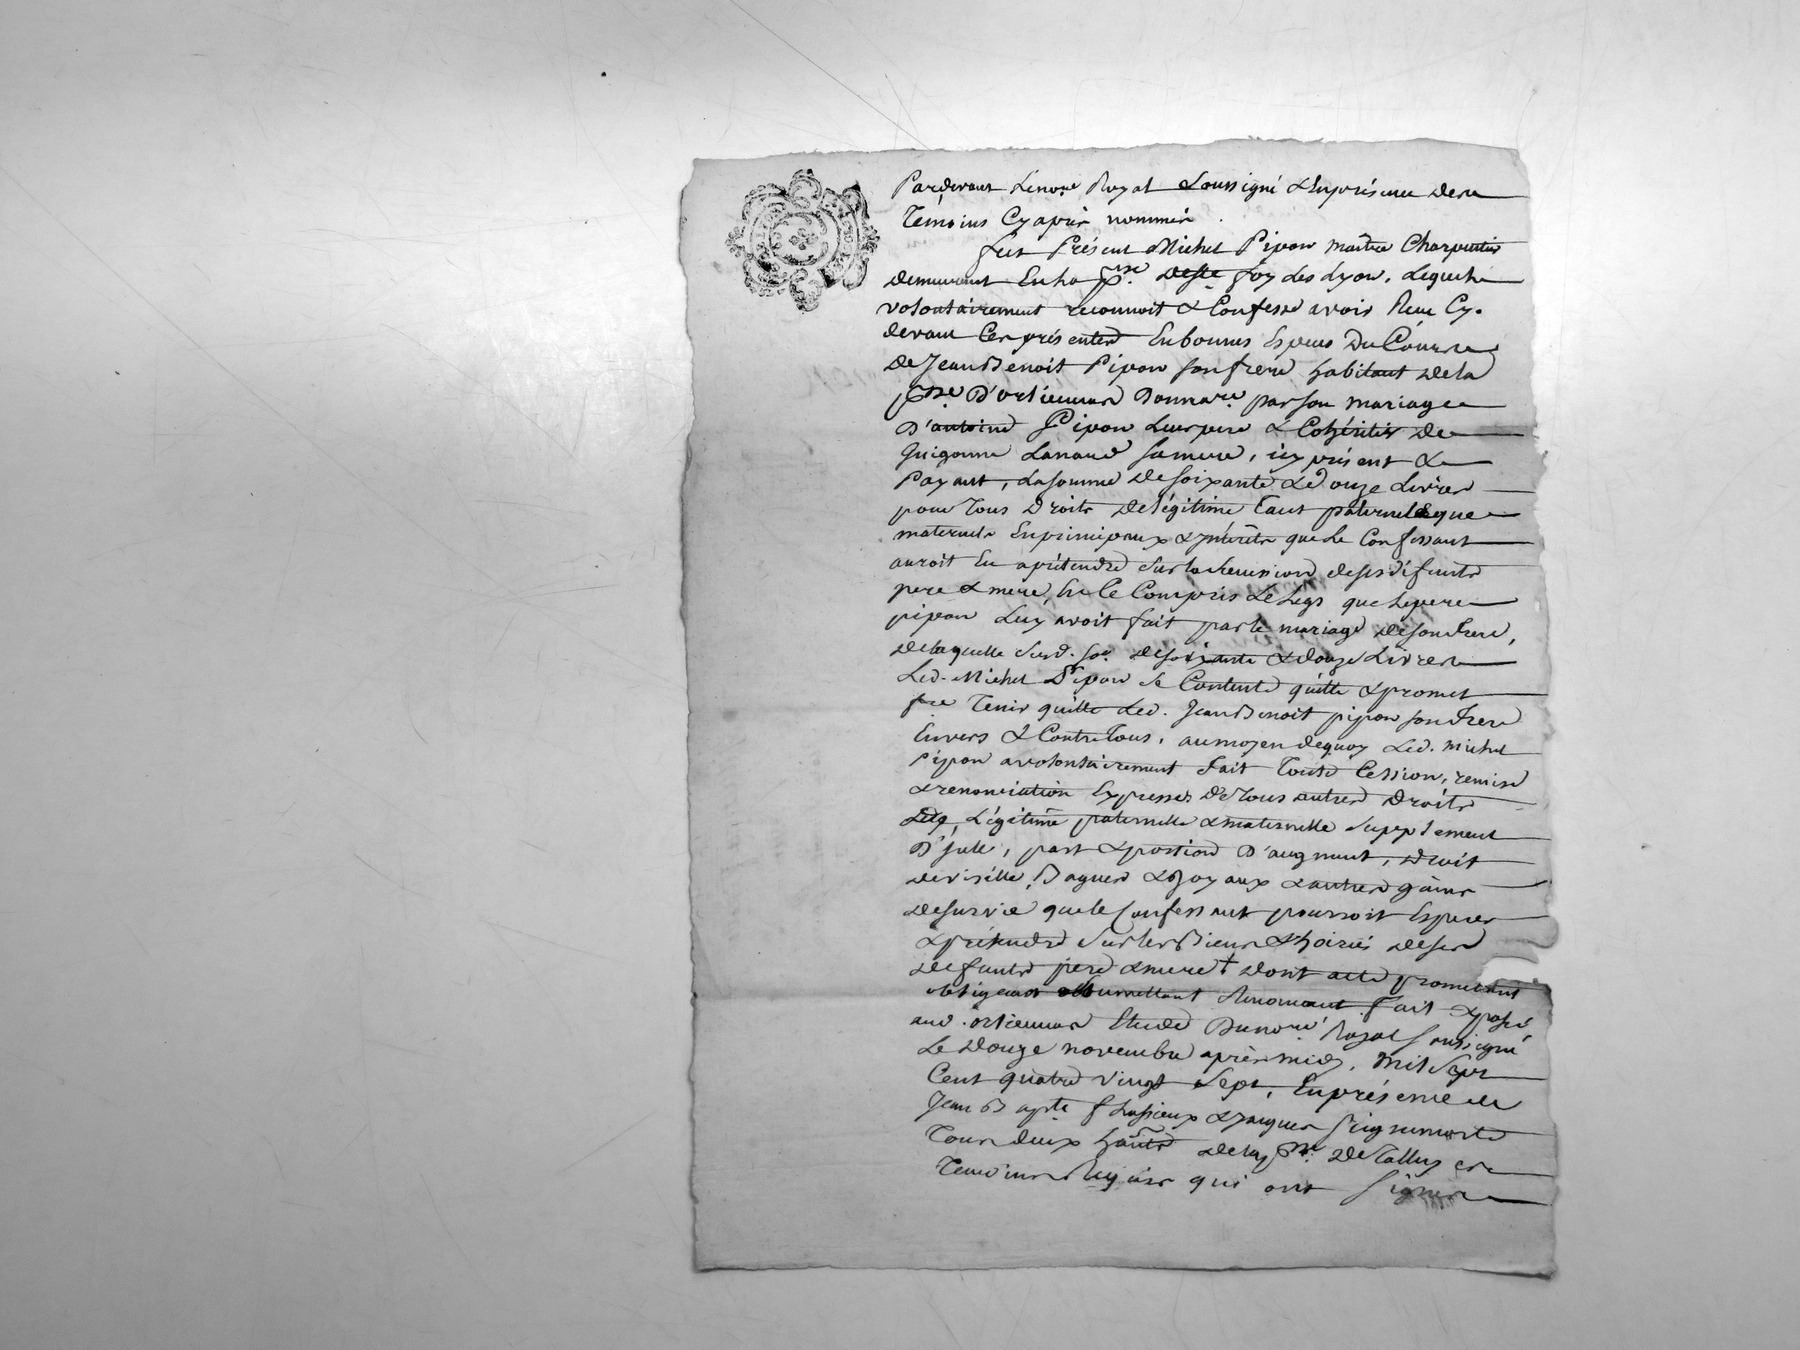 Pardevant Le no.re Royal Soussigné & En présence des
Témoins Cy après nommés
fut Présent Michel Pipon maître Charpentier
demeurant En la p.sse de ste foy Les Lyon, Lequel
volontairement reconnoit & Confesse avoir Reçu Cy-
devant Ces présentes En bonnes Espèces Du Cours
de Jean Benoit Pipon son frere habitant de la
p.sse D'orlienas Donnat.re par son mariage
D'antoine Pipon Leur pere & Cohéritier de
Guigonne Lanard sa mere, icy présent &
Payant, La somme de soixante & Douze Livres
pour Tous Droits de légitime Tant paternels que
maternels En principaux & intérêts que Le Confessant
auroit Eu a prétendre Sur la succession de ses défunts
pere & mere, En Ce Compris Le Legs que Le pere
pipon Luy avoit fait par le mariage de son frere,
de laquelle Sus d. so.e de soixante & douze Livres
Led. Michel Pipon se Contente quitte & promet
fre Tenir quitte Led. Jean Benoit pipon son frere
Envers & Contre Tous, au moyen de quoy Led. Michel
Pipon a volontairement fait Toute Cession, remise
& renonciation Expresses De Tous autres Droits
de, Légitime paternelle & maternelle Supplement
D'jcelle, part & portion D'augment, Droit
de virille, Bagues & Joyaux & autres gains
de survie que le Confessant pourroit Esperer
& prétendre Sur les Biens & hoiries de ses
defunts pere & mere + Dont acte promettant
obligeant soumettant Renonçant fait & passé
aud. orlienas Etude Du no.re Royal soussigné
Le Douze novembre après midy, Mil Sept
Cent quatre vingt Sept, En présence de
Jean B apte & Jacques
Tous deux hants de la p.sse De Talluy
Temoins Requis qui ont signés